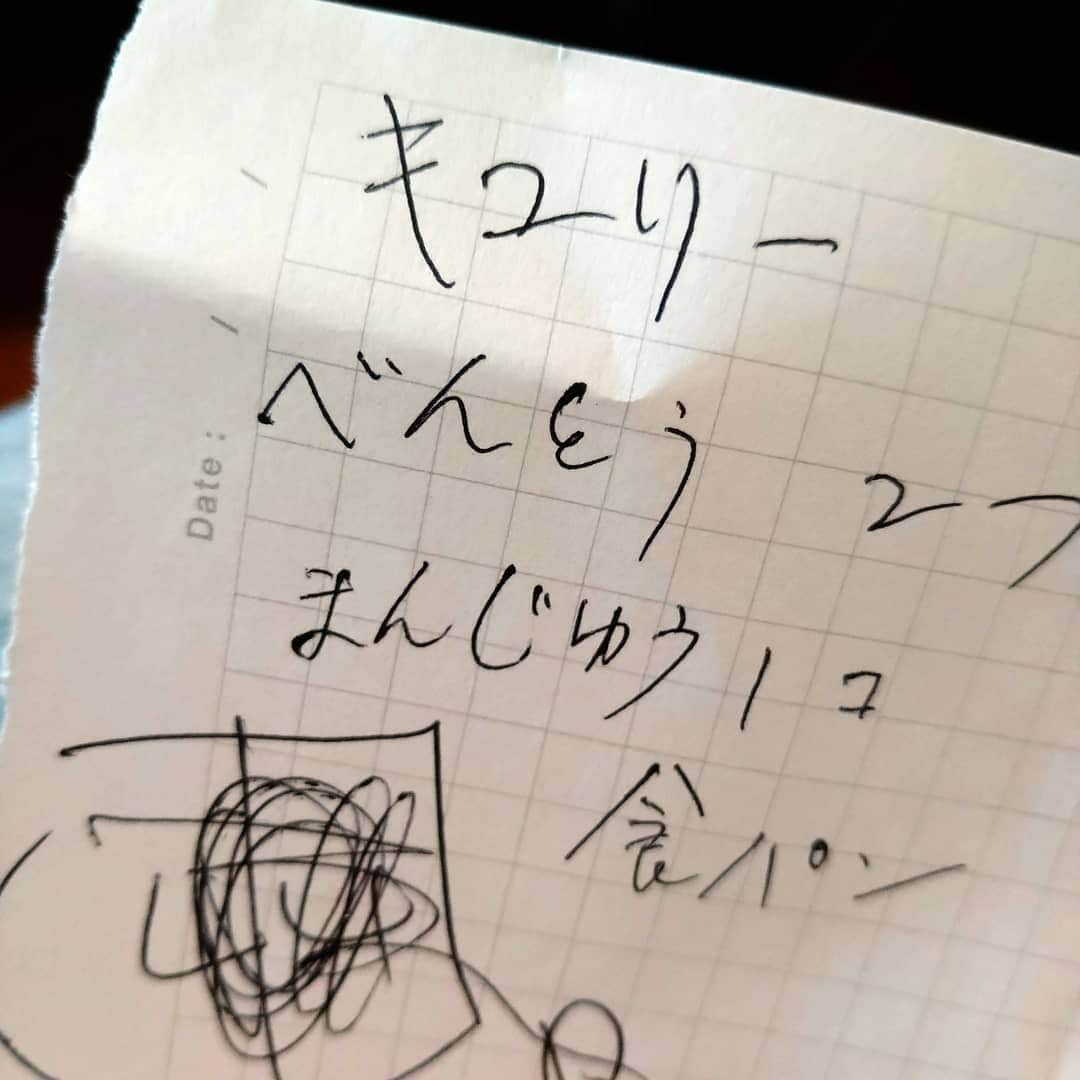 キユリー
べんとう 2つ
まんじゅう 1コ
食パン
Date: / /